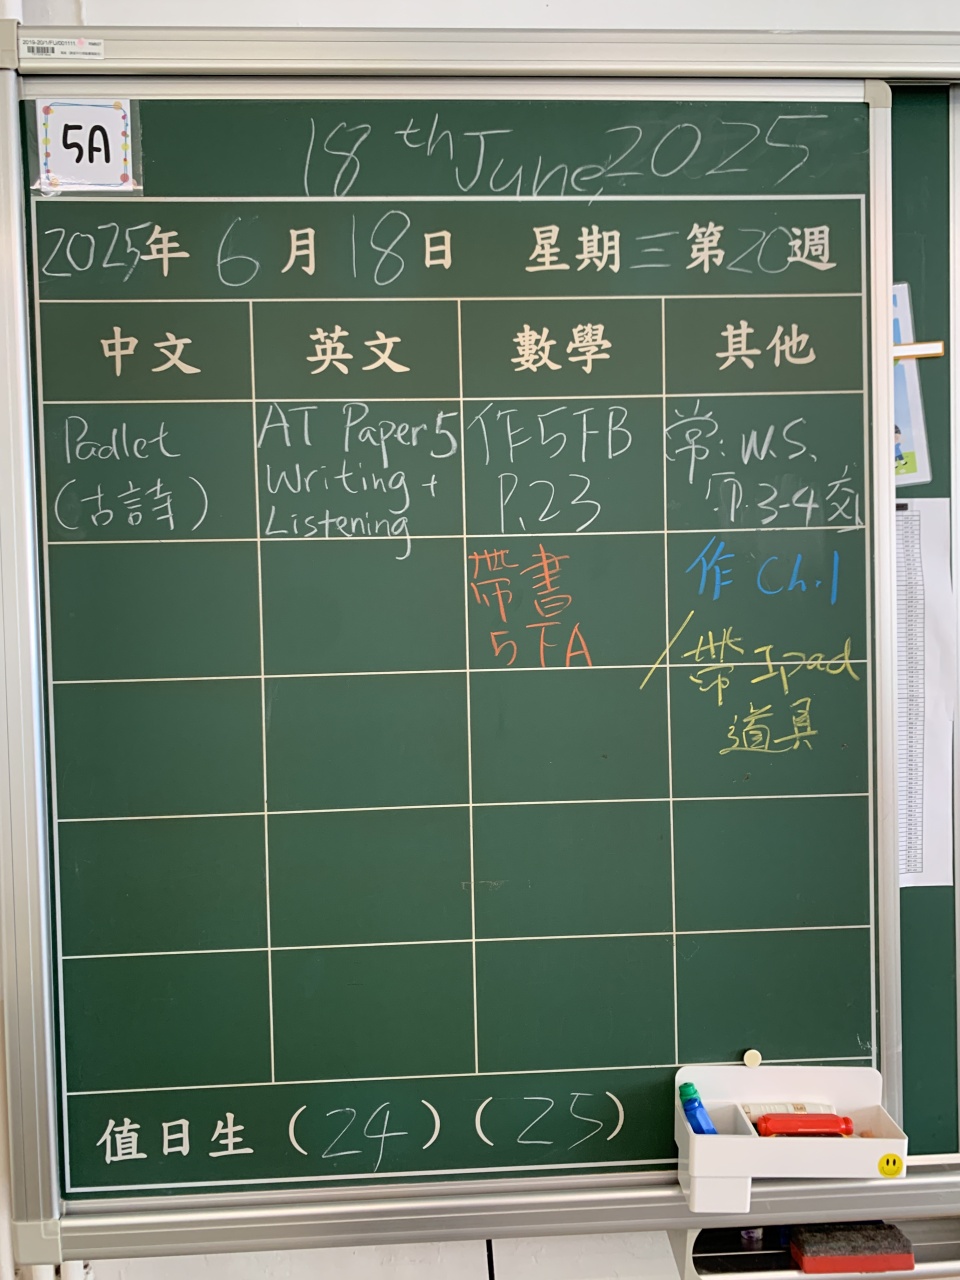 5A
18th June, 2025
2025年 6月18日 星期三第20週
中文 英文 數學 其他
Padlet
(古詩)
AT Paper 5
Writing +
Listening
作5下B
P.23
常: W.S.
P.3-4 交
帶書
5下A
作 Ch.1
帶Ipad
道具
值日生 (24) (25)